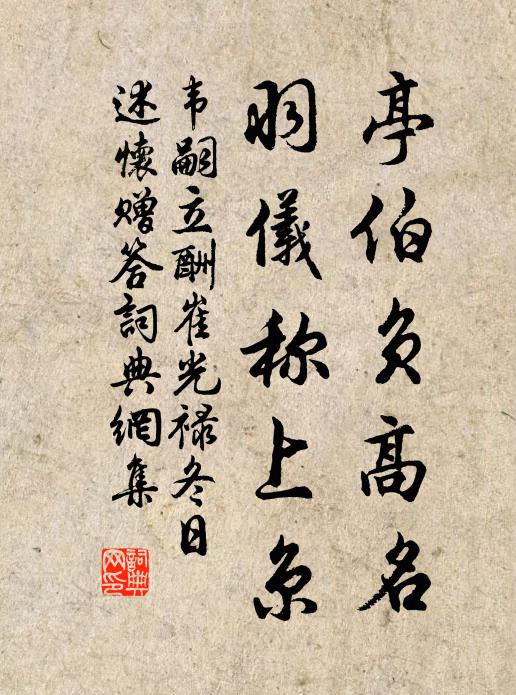 亭伯负高名
羽仪称上京
韦嗣立酬崔光禄冬日
述怀赠答词典網集
詞典網印